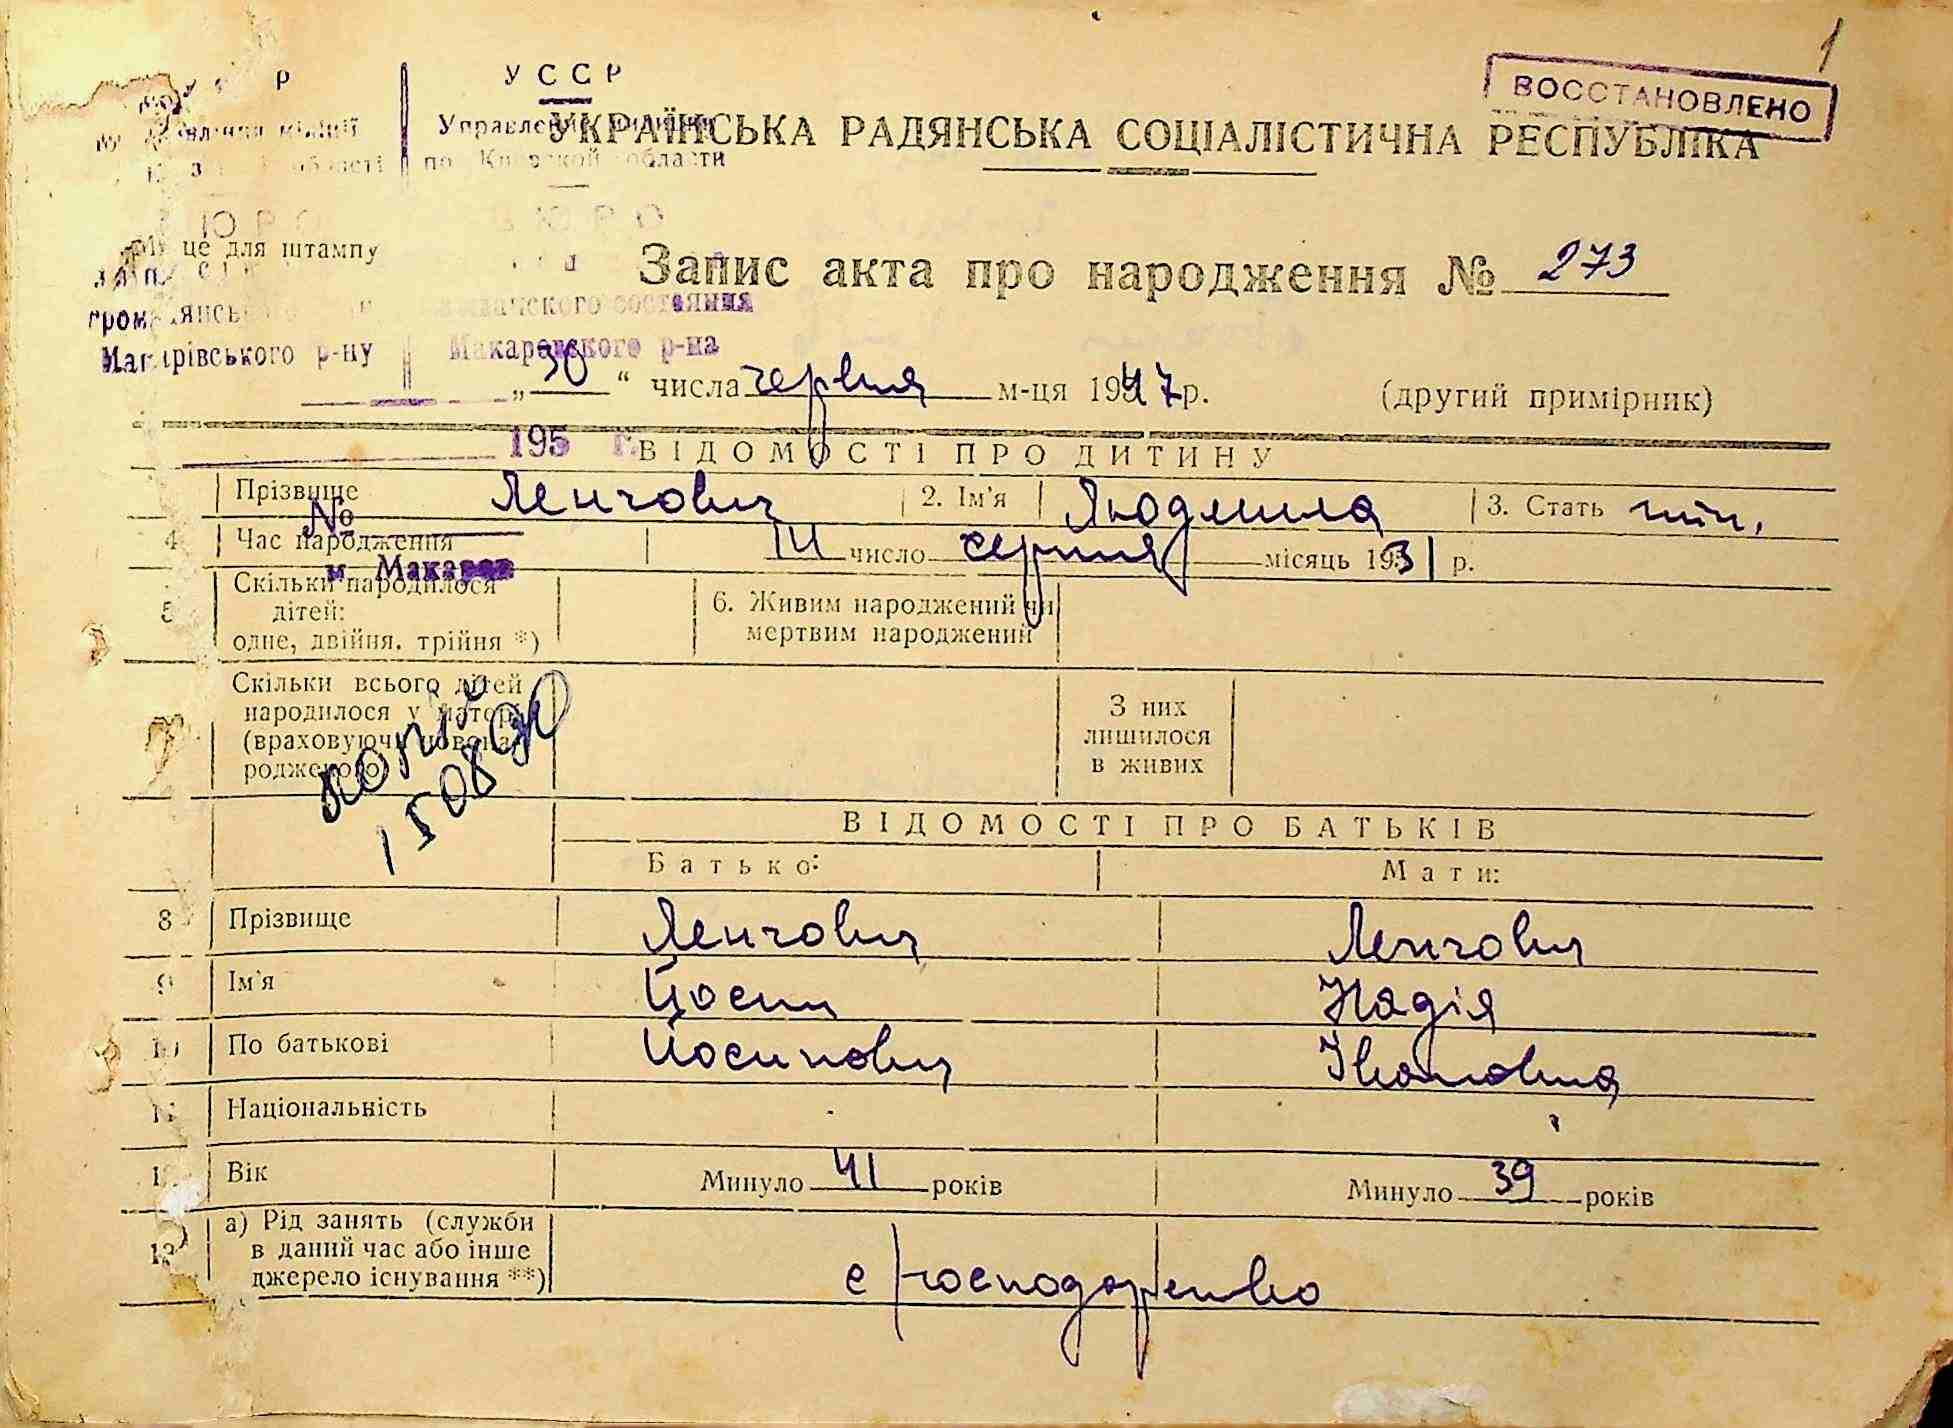 1
ВОССТАНОВЛЕНО
УССР
Управление милиции
по Киевской области
міліції
області
УКРАЇНСЬКА РАДЯНСЬКА СОЦІАЛІСТИЧНА РЕСПУБЛІКА
БЮРО
це для штампу
Запис акта про народження № 273
состояния
Макарівського р-ну
Макаровского р-на
„30“ числа червня м-ця 1947 р. (другий примірник)
195 г.
ВІДОМОСТІ ПРО ДИТИНУ
Прізвище Ленгович 2. Ім'я Людмила 3. Стать жін.
№
4 Час народження 14 число серпня місяць 1931 р.
м. Макаров
5 Скільки народилося
дітей:
одне, двійня, трійня *)
6. Живим народжений чи
мертвим народжений
Скільки всього дітей
народилося у матері
(враховуючи новона-
родженого)
З них
лишилося
в живих
ВІДОМОСТІ ПРО БАТЬКІВ
Батько: Мати:
8 Прізвище Ленгович Ленгович
9 Ім'я Йосип Надія
10 По батькові Йосипович Івановна
11 Національність
12 Вік Минуло 41 років Минуло 39 років
13 а) Рід занять (служби
в даний час або інше
джерело існування **)
с/господарство